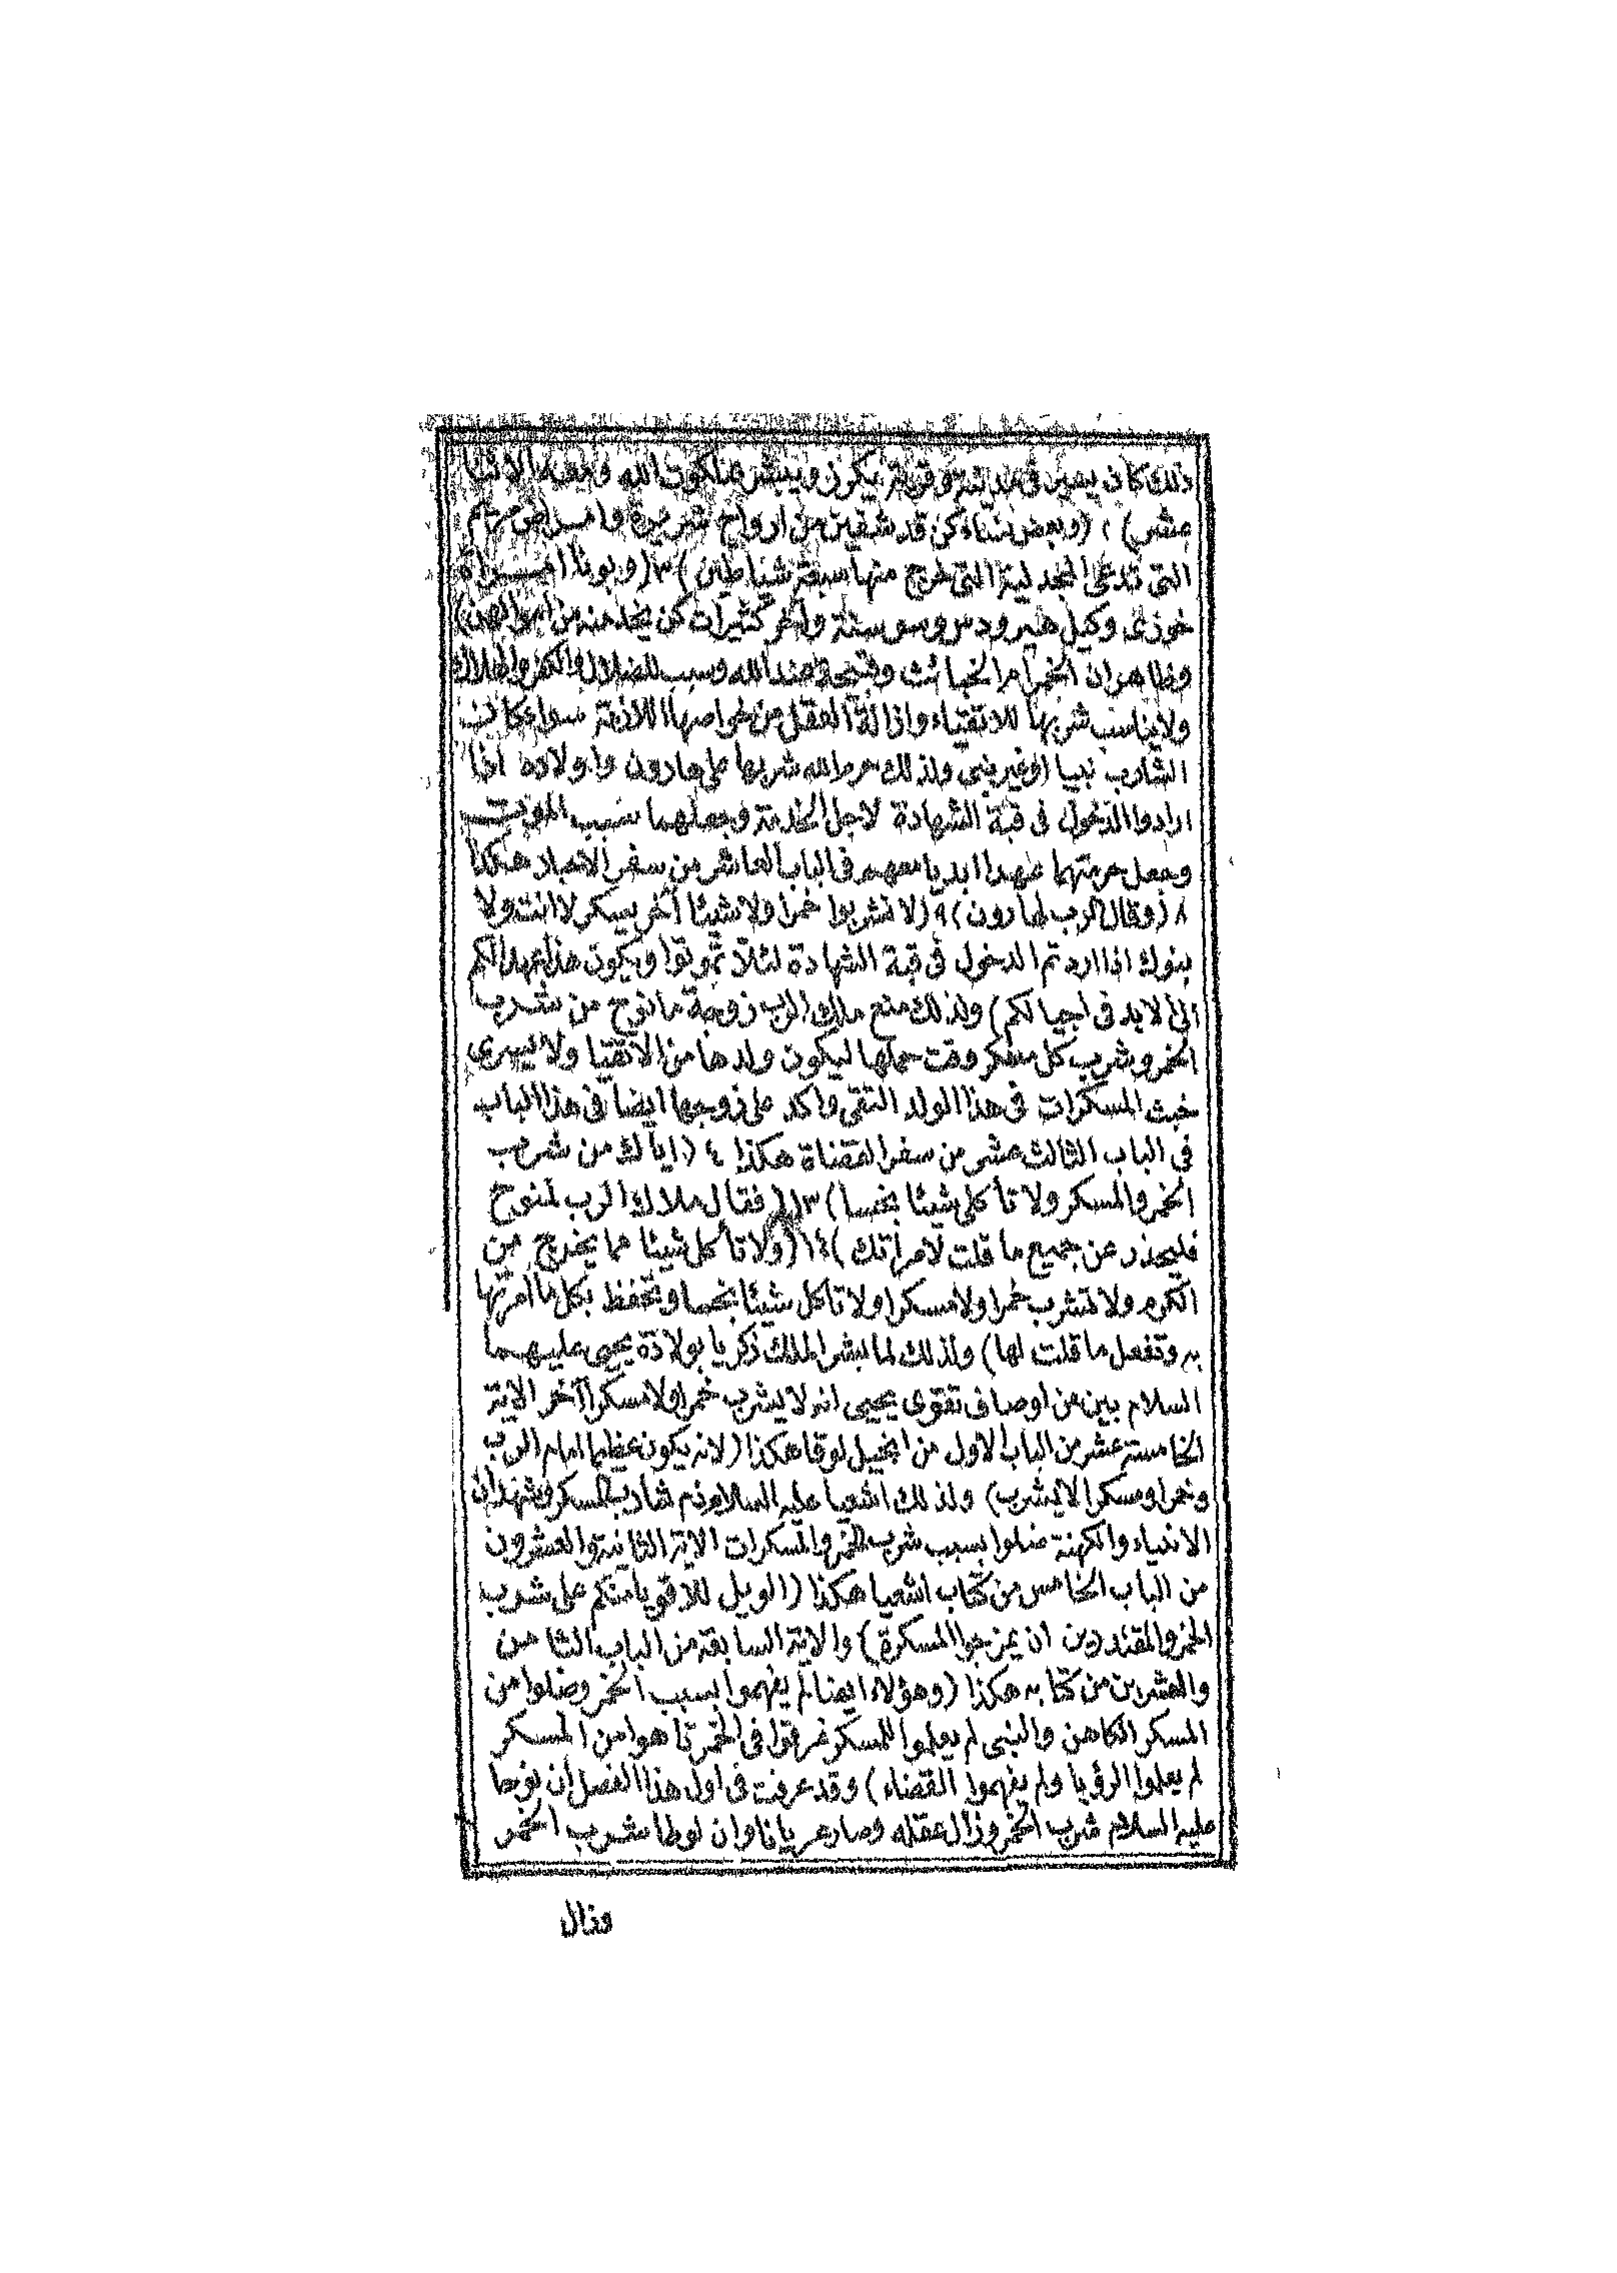 ذلك كان يسير فى مدينة وقرية يكرز ويبشر بملكوت الله ومعه الاثنا
عشر) ٢ (وبعض نساء كن قد شفين من ارواح شريرة وامراض مريم
التى تدعى المجدلية التى خرج منها سبعة شياطين) ٣ (ويونا امرأة
خوزى وكيل هيرودس وسوسنة وأخر كثيرات كن يخدمنه من اموالهن)
وظاهر ان الخمر ام الخبائث وقبيحة عند الله وسبب للضلال والكفر والهلاك
ولا يناسب شربها للاتقياء وازالة العقل من خواصها اللازمة سواء كان
الشارب نبيا او غير نبى ولذلك حرم الله شربها على هارون واولاده اذا
ارادوا الدخول فى قبة الشهادة لاجل الخدمة وجعلهما سبب الموت
وجعل حرمتهما عهدا ابديا معهم فى الباب العاشر من سفر الاحبار هكذا
٨ (وقال الرب لهارون) ٩ (لا تشربوا خمرا ولا شيئا آخر يسكر لا انت ولا
بنوك اذا اردتم الدخول فى قبة الشهادة لئلا تموتوا ويكون هذا عهدا لكم
الى الابد فى اجيالكم) ولذلك منع ملك الرب زوجة مانوح من شرب
الخمر وشرب كل مسكر وقت حملها ليكون ولدها من الاتقيا ولا يسرى
خبث المسكرات فى هذا الولد التقى واكد على زوجها ايضا فى هذا الباب
فى الباب الثالث عشر من سفر القضاة هكذا ٤ (اياك من شرب
الخمر والمسكر ولا تأكلى شيئا نجسا) ١٣ (فقال ملاك الرب لمنوح
فليحذر عن جميع ما قلت لامراتك) ١٤ (ولا تأكل شيئا مما يخرج من
الكرم ولا تشرب خمرا ولا مسكرا ولا تاكل شيئا نجسا وتحفظ بكل ما امرتها
به وتفعل ما قلت لها) ولذلك لما بشر الملك زكريا بولادة يحيى عليهما
السلام بين من اوصاف تقوى يحيى انه لا يشرب خمرا ولا مسكرا آخر الاية
الخامسة عشر من الباب الاول من انجيل لوقا هكذا (لانه يكون عظيما امام الرب
وخمرا ومسكرا لا يشرب) ولذلك اشعيا عليه السلام ذم شارب المسكر وشهد ان
الانبياء والكهنة ضلوا بسبب شرب الخمر والمسكرات الاية الثانية والعشرون
من الباب الخامس من كتاب اشعيا هكذا (الويل للاقويا منكم على شرب
الخمر والمقتدرين ان يمزجوا المسكرة) والاية السابعة من الباب الثامن
والعشرين من كتابه هكذا (وهؤلاء ايضا لم يفهموا بسبب الخمر وضلوا من
المسكر الكاهن والنبى لم يعلموا للمسكر غرقوا فى الخمر تاهوا من المسكر
لم يعلموا الرؤيا ولم يفهموا القضاء) وقد عرفت فى اول هذا الفصل ان نوحا
عليه السلام شرب الخمر وزال عقله وصار عريانا وان لوطا شرب الخمر
وزال